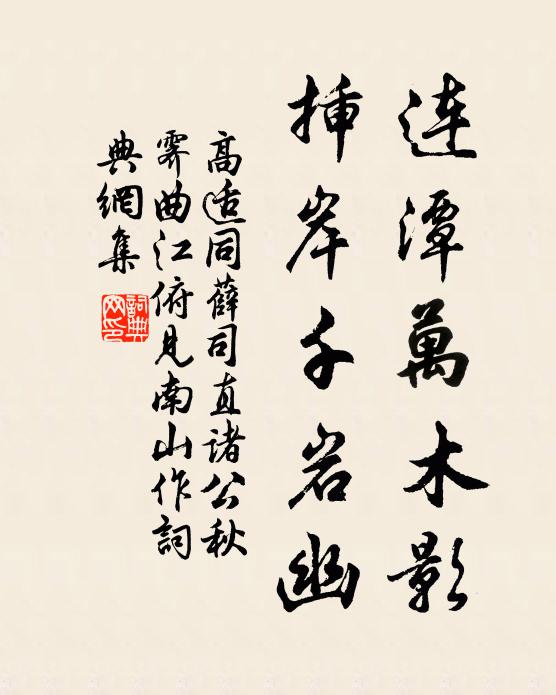 連潭萬木影
挿岸千岩幽
高适同薛司直諸公秋
霽曲江俯見南山作詞
典網集
詞典
网印